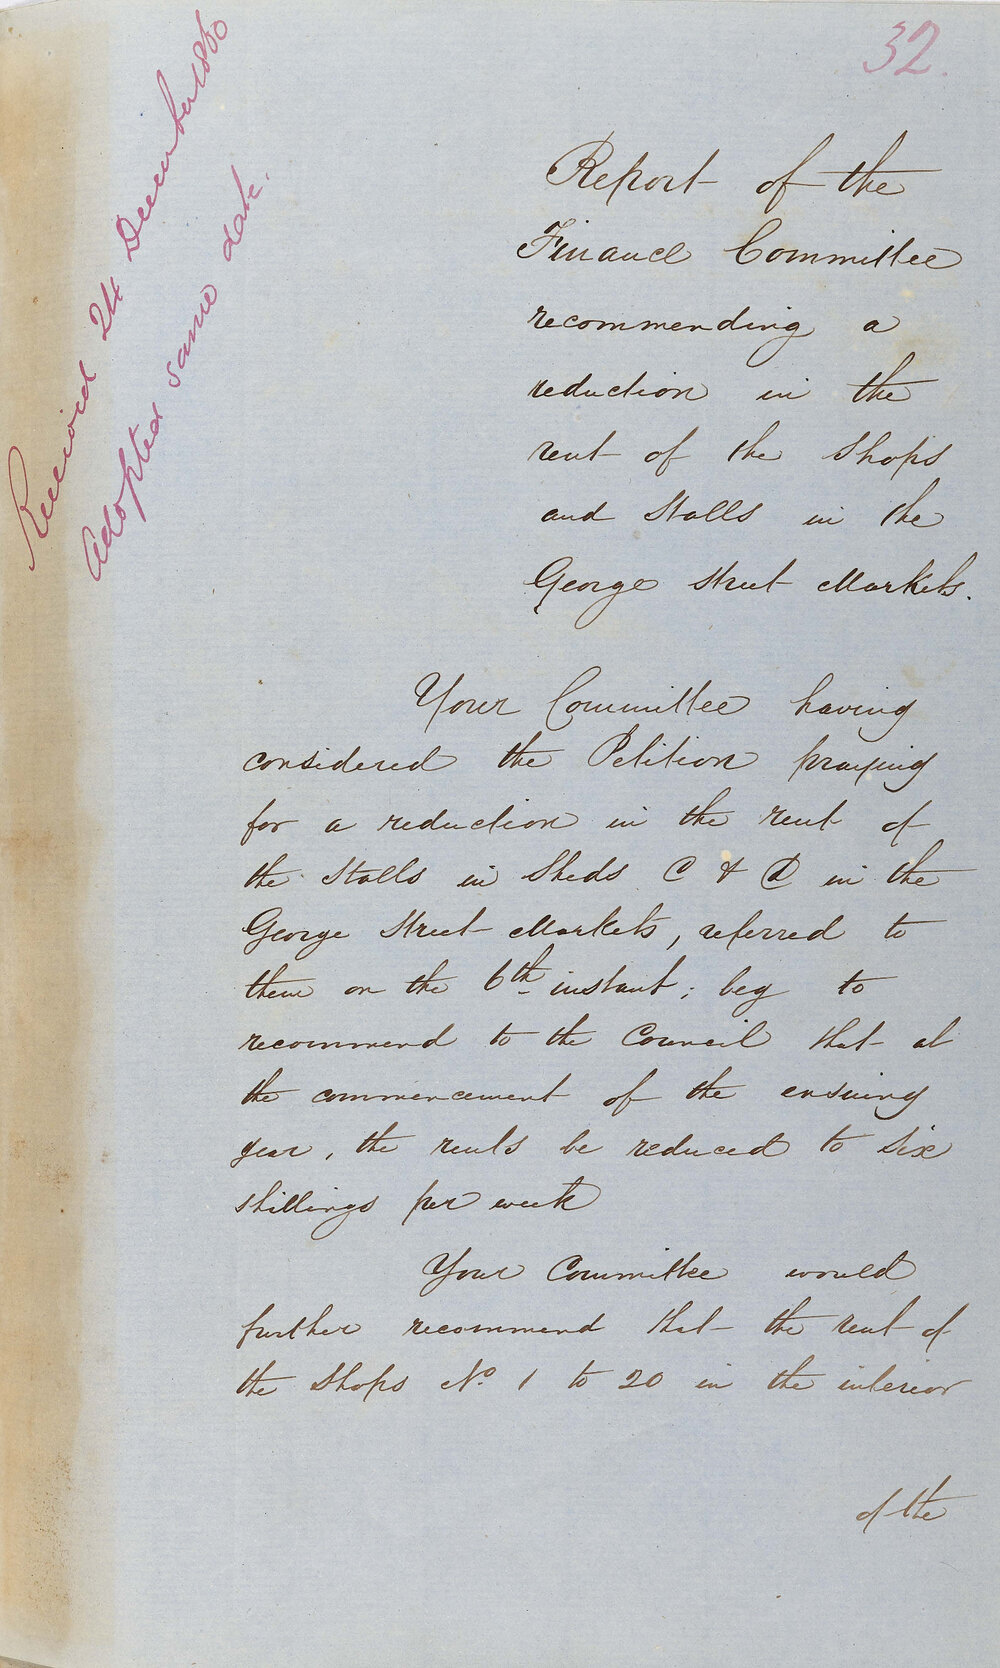 32.
Received 24 December 1860
Adopted same date.
Report of the
Finance Committee
recommending a
reduction in the
rent of the Shops
and Stalls in the
George Street Markets.
Your Committee having
considered the Petition praying
for a reduction in the rent of
the Stalls in Sheds C & D in the
George Street Markets, referred to
them on the 6th instant; beg to
recommend to the Council that at
the commencement of the ensuing
year, the rents be reduced to six
shillings per week
Your Committee would
further recommend that the rent of
the Shops No. 1 to 20 in the interior
of the